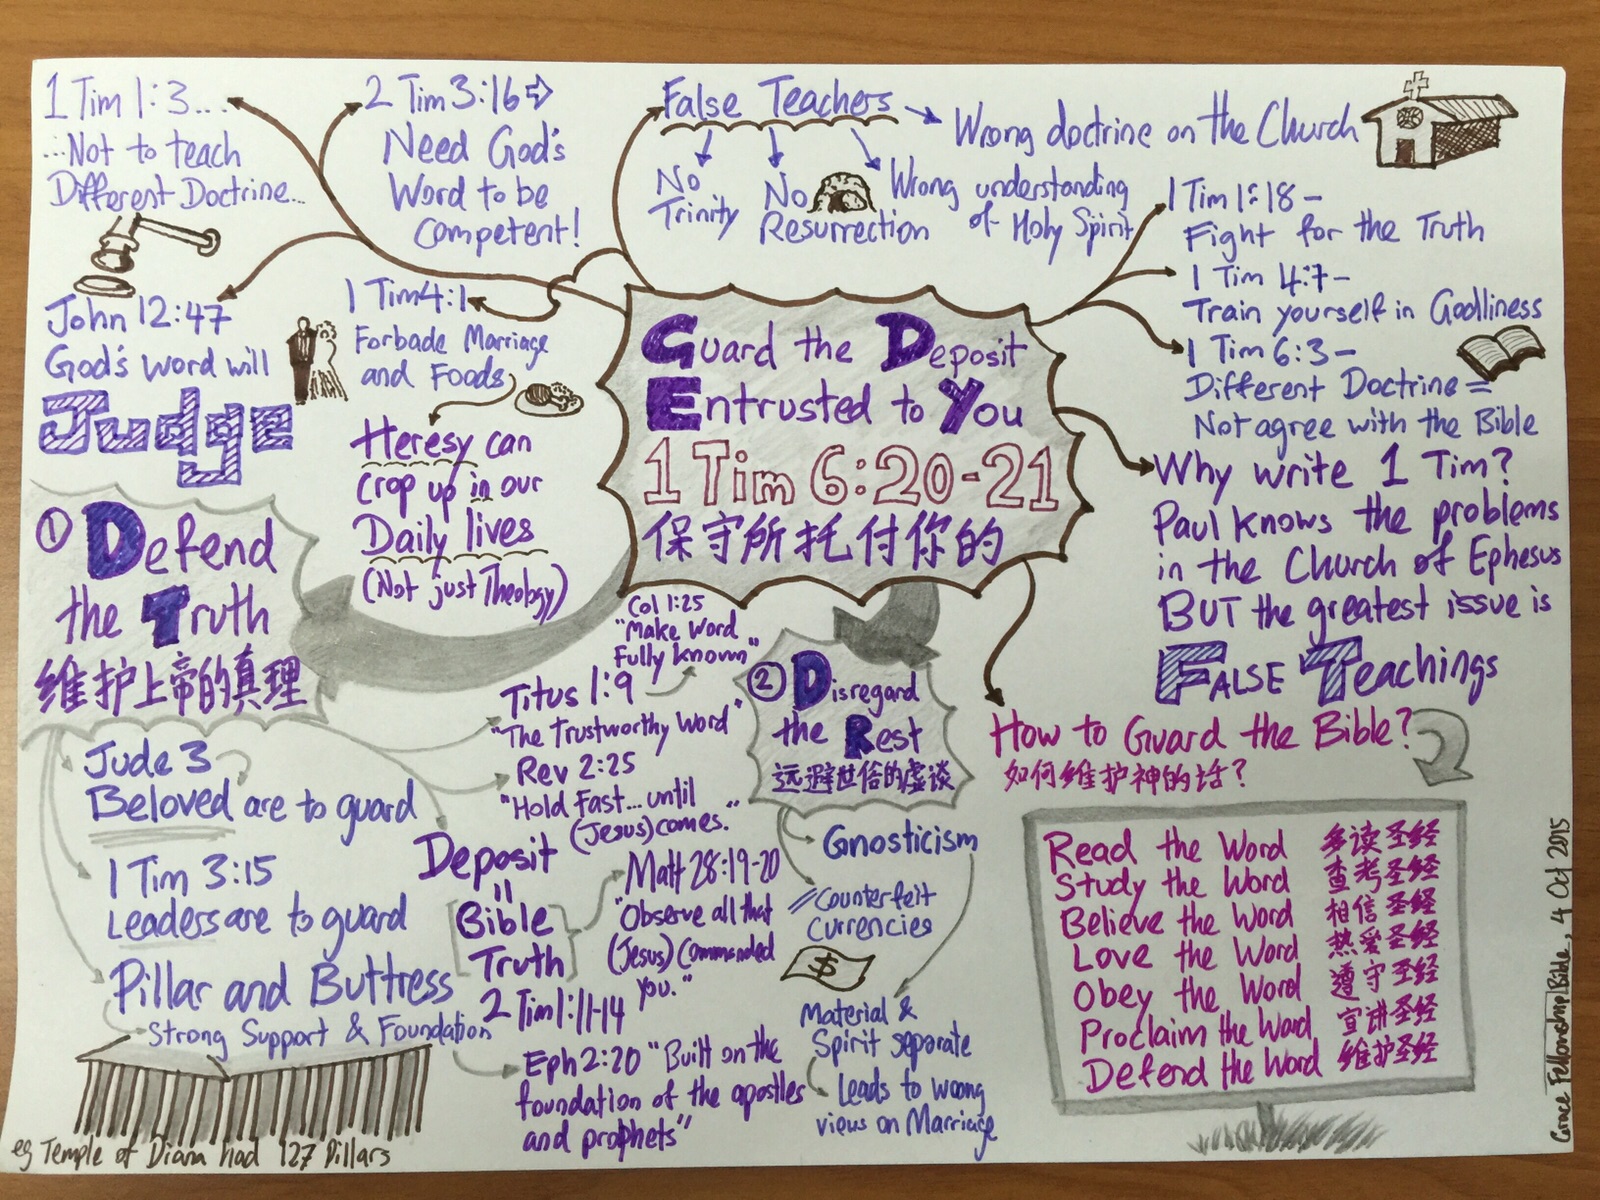 1 Tim 1:3...
...Not to teach
Different Doctrine...
2 Tim 3:16 ⇨
Need God's
Word to be
competent!
False Teachers
No
Trinity
No
Resurrection
Wrong understanding
of Holy Spirit
Wrong doctrine on the Church
1 Tim 1:18 –
Fight for the Truth
1 Tim 4:7 –
Train yourself in Godliness
1 Tim 6:3 –
Different Doctrine =
Not agree with the Bible
John 12:47
God's word will
Judge
1 Tim 4:1
Forbade Marriage
and Foods
Heresy can
crop up in our
Daily lives
(Not just Theology)
Guard the Deposit
Entrusted to You
1 Tim 6:20-21
保守所托付你的
Why write 1 Tim?
Paul knows the problems
in the Church of Ephesus
BUT the greatest issue is
False Teachings
① Defend
the Truth
维护上帝的真理
Jude 3
Beloved are to guard
1 Tim 3:15
Leaders are to guard
Pillar and Buttress
Strong Support & Foundation
eg Temple of Diana had 127 Pillars
Col 1:25
"Make Word
Fully known"
Titus 1:9
"The Trustworthy Word"
Rev 2:25
"Hold Fast... until
(Jesus) comes."
Deposit
=
Bible
Truth
Matt 28:19-20
"Observe all that
(Jesus) Commanded
you."
2 Tim 1:11-14
Eph 2:20 "Built on the
foundation of the apostles
and prophets"
② Disregard
the Rest
远避世俗的虚谈
Gnosticism
Counterfeit
Currencies
$
Material &
Spirit separate
Leads to wrong
views on Marriage
How to Guard the Bible?
如何维护神的话?
Read the Word 多读圣经
Study the Word 查考圣经
Believe the Word 相信圣经
Love the Word 热爱圣经
Obey the Word 遵守圣经
Proclaim the Word 宣讲圣经
Defend the Word 维护圣经
Grace Fellowship Bible, 4 Oct 2015